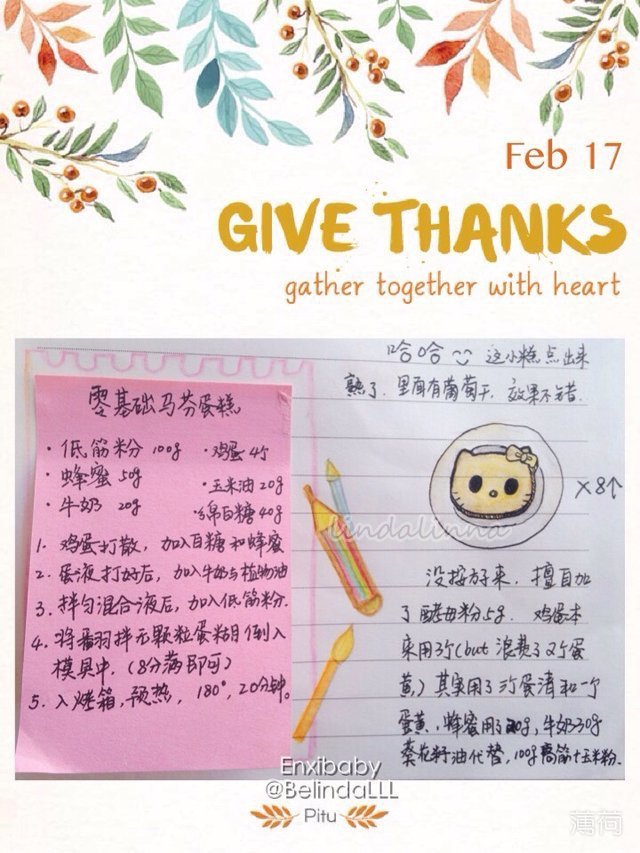 Feb 17
GIVE THANKS
gather together with heart
哈哈 这小糕点出来
熟了.里面有葡萄干,效果不错.
零基础马芬蛋糕
· 低筋粉 100g · 鸡蛋 4个
· 蜂蜜 50g · 玉米油 20g
· 牛奶 20g · 绵白糖 40g
1. 鸡蛋打散,加入白糖和蜂蜜
2. 蛋液打好后,加入牛奶与植物油
3. 拌匀混合液后,加入低筋粉.
4. 将翻拌无颗粒蛋糊倒入
模具中.(8分满即可)
5. 入烤箱,预热,180°,20分钟。
×8个
lindalinna
没按方来.擅自加
了酵母粉5g. 鸡蛋本
来用3个(but 浪费了2个蛋
黄,)其实用了3个蛋清和一个
蛋黄,蜂蜜用了20g,牛奶30g
葵花籽油代替,100g高筋+玉米粉.
Enxibaby
@BelindaLLL
Pitu
薄荷